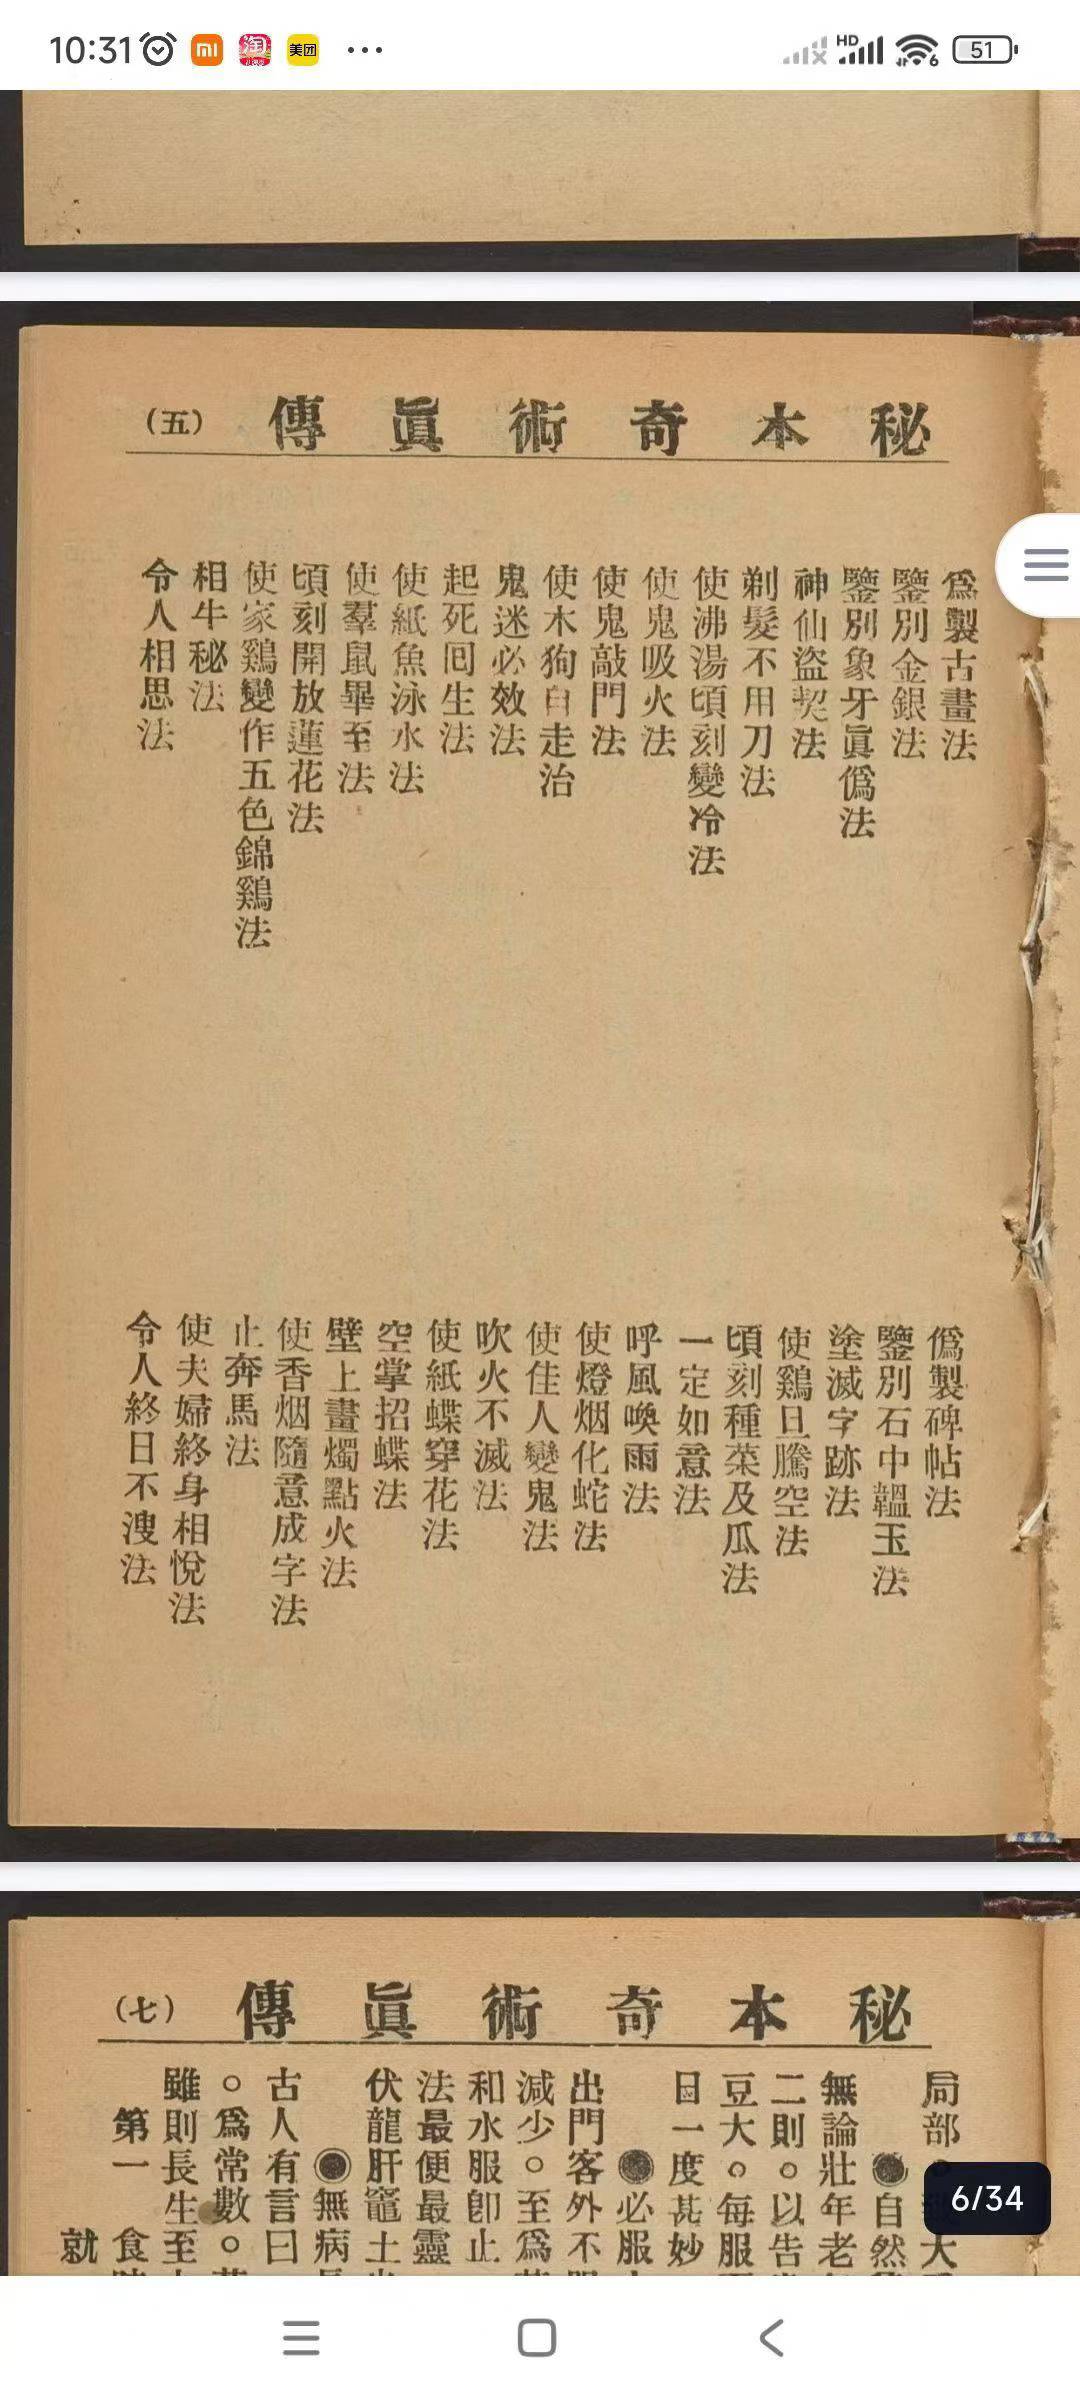 10:31
美团
HD
6
51
秘本奇術眞傳
(五)
爲製古畫法
鑒別金銀法
鑒別象牙眞僞法
神仙盜契法
剃髮不用刀法
使沸湯頃刻變冷法
使鬼吸火法
使鬼敲門法
使木狗自走治
鬼迷必效法
起死囘生法
使紙魚泳水法
使羣鼠畢至法
頃刻開放蓮花法
使家鷄變作五色錦鷄法
相牛秘法
令人相思法
僞製碑帖法
鑒別石中韞玉法
塗滅字跡法
使鷄旦騰空法
頃刻種菜及瓜法
一定如意法
呼風喚雨法
使燈烟化蛇法
使佳人變鬼法
吹火不滅法
使紙蝶穿花法
空掌招蝶法
壁上畫燭點火法
使香烟隨意成字法
止奔馬法
使夫婦終身相悅法
令人終日不溲法
秘本奇術眞傳
(七)
局部。大
●自然
無論壯年老
二則。以告
豆大。每服
日一度甚妙
●必服
出門客外不
減少。至爲
和水服卽止
法最便最靈
伏龍肝竈土
●無病
古人有言曰
。爲常數。
雖則長生至
第一食
就
6/34